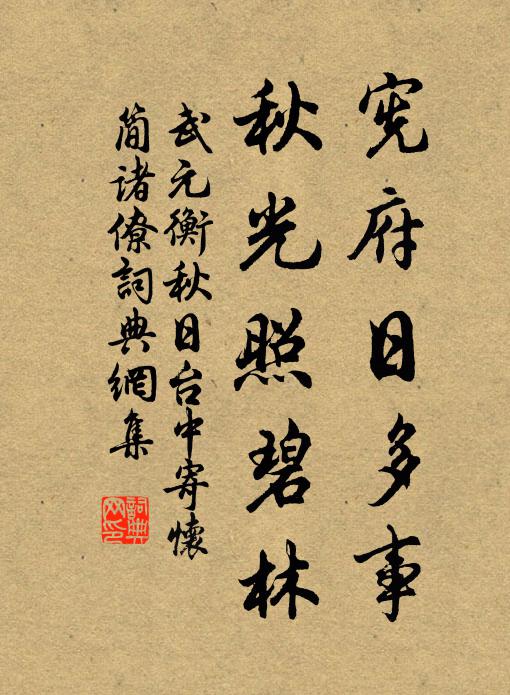 宪府日多事
秋光照碧林
武元衡秋日台中寄懷
簡諸僚詞典網集
詞典
网印